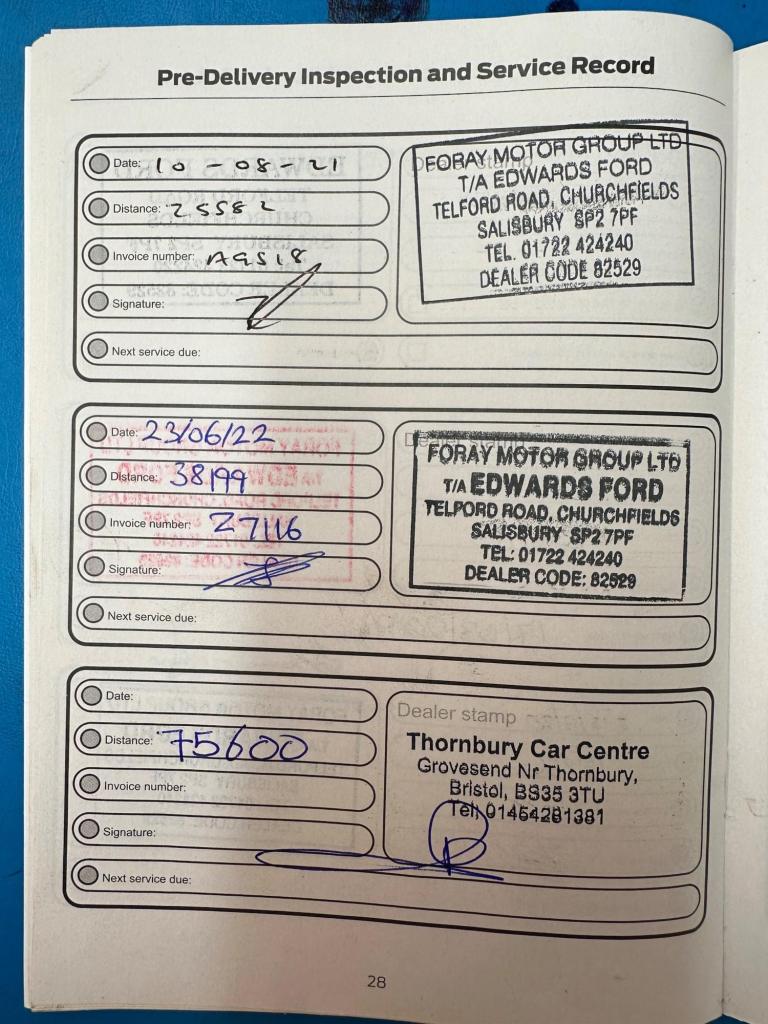 Pre-Delivery Inspection and Service Record
Date: 10-08-21
Distance: 25582
Invoice number: A9518
Signature:
Next service due:
Dealer stamp
FORAY MOTOR GROUP LTD
T/A EDWARDS FORD
TELFORD ROAD, CHURCHFIELDS
SALISBURY SP2 7PF
TEL. 01722 424240
DEALER CODE 82529
Date: 23/06/22
Distance: 38199
Invoice number: Z7116
Signature:
Next service due:
Dealer stamp
FORAY MOTOR GROUP LTD
T/A EDWARDS FORD
TELFORD ROAD, CHURCHFIELDS
SALISBURY SP2 7PF
TEL: 01722 424240
DEALER CODE: 82529
Date:
Distance: 75600
Invoice number:
Signature:
Next service due:
Dealer stamp
Thornbury Car Centre
Grovesend Nr Thornbury,
Bristol, BS35 3TU
Tel: 01454281381
28